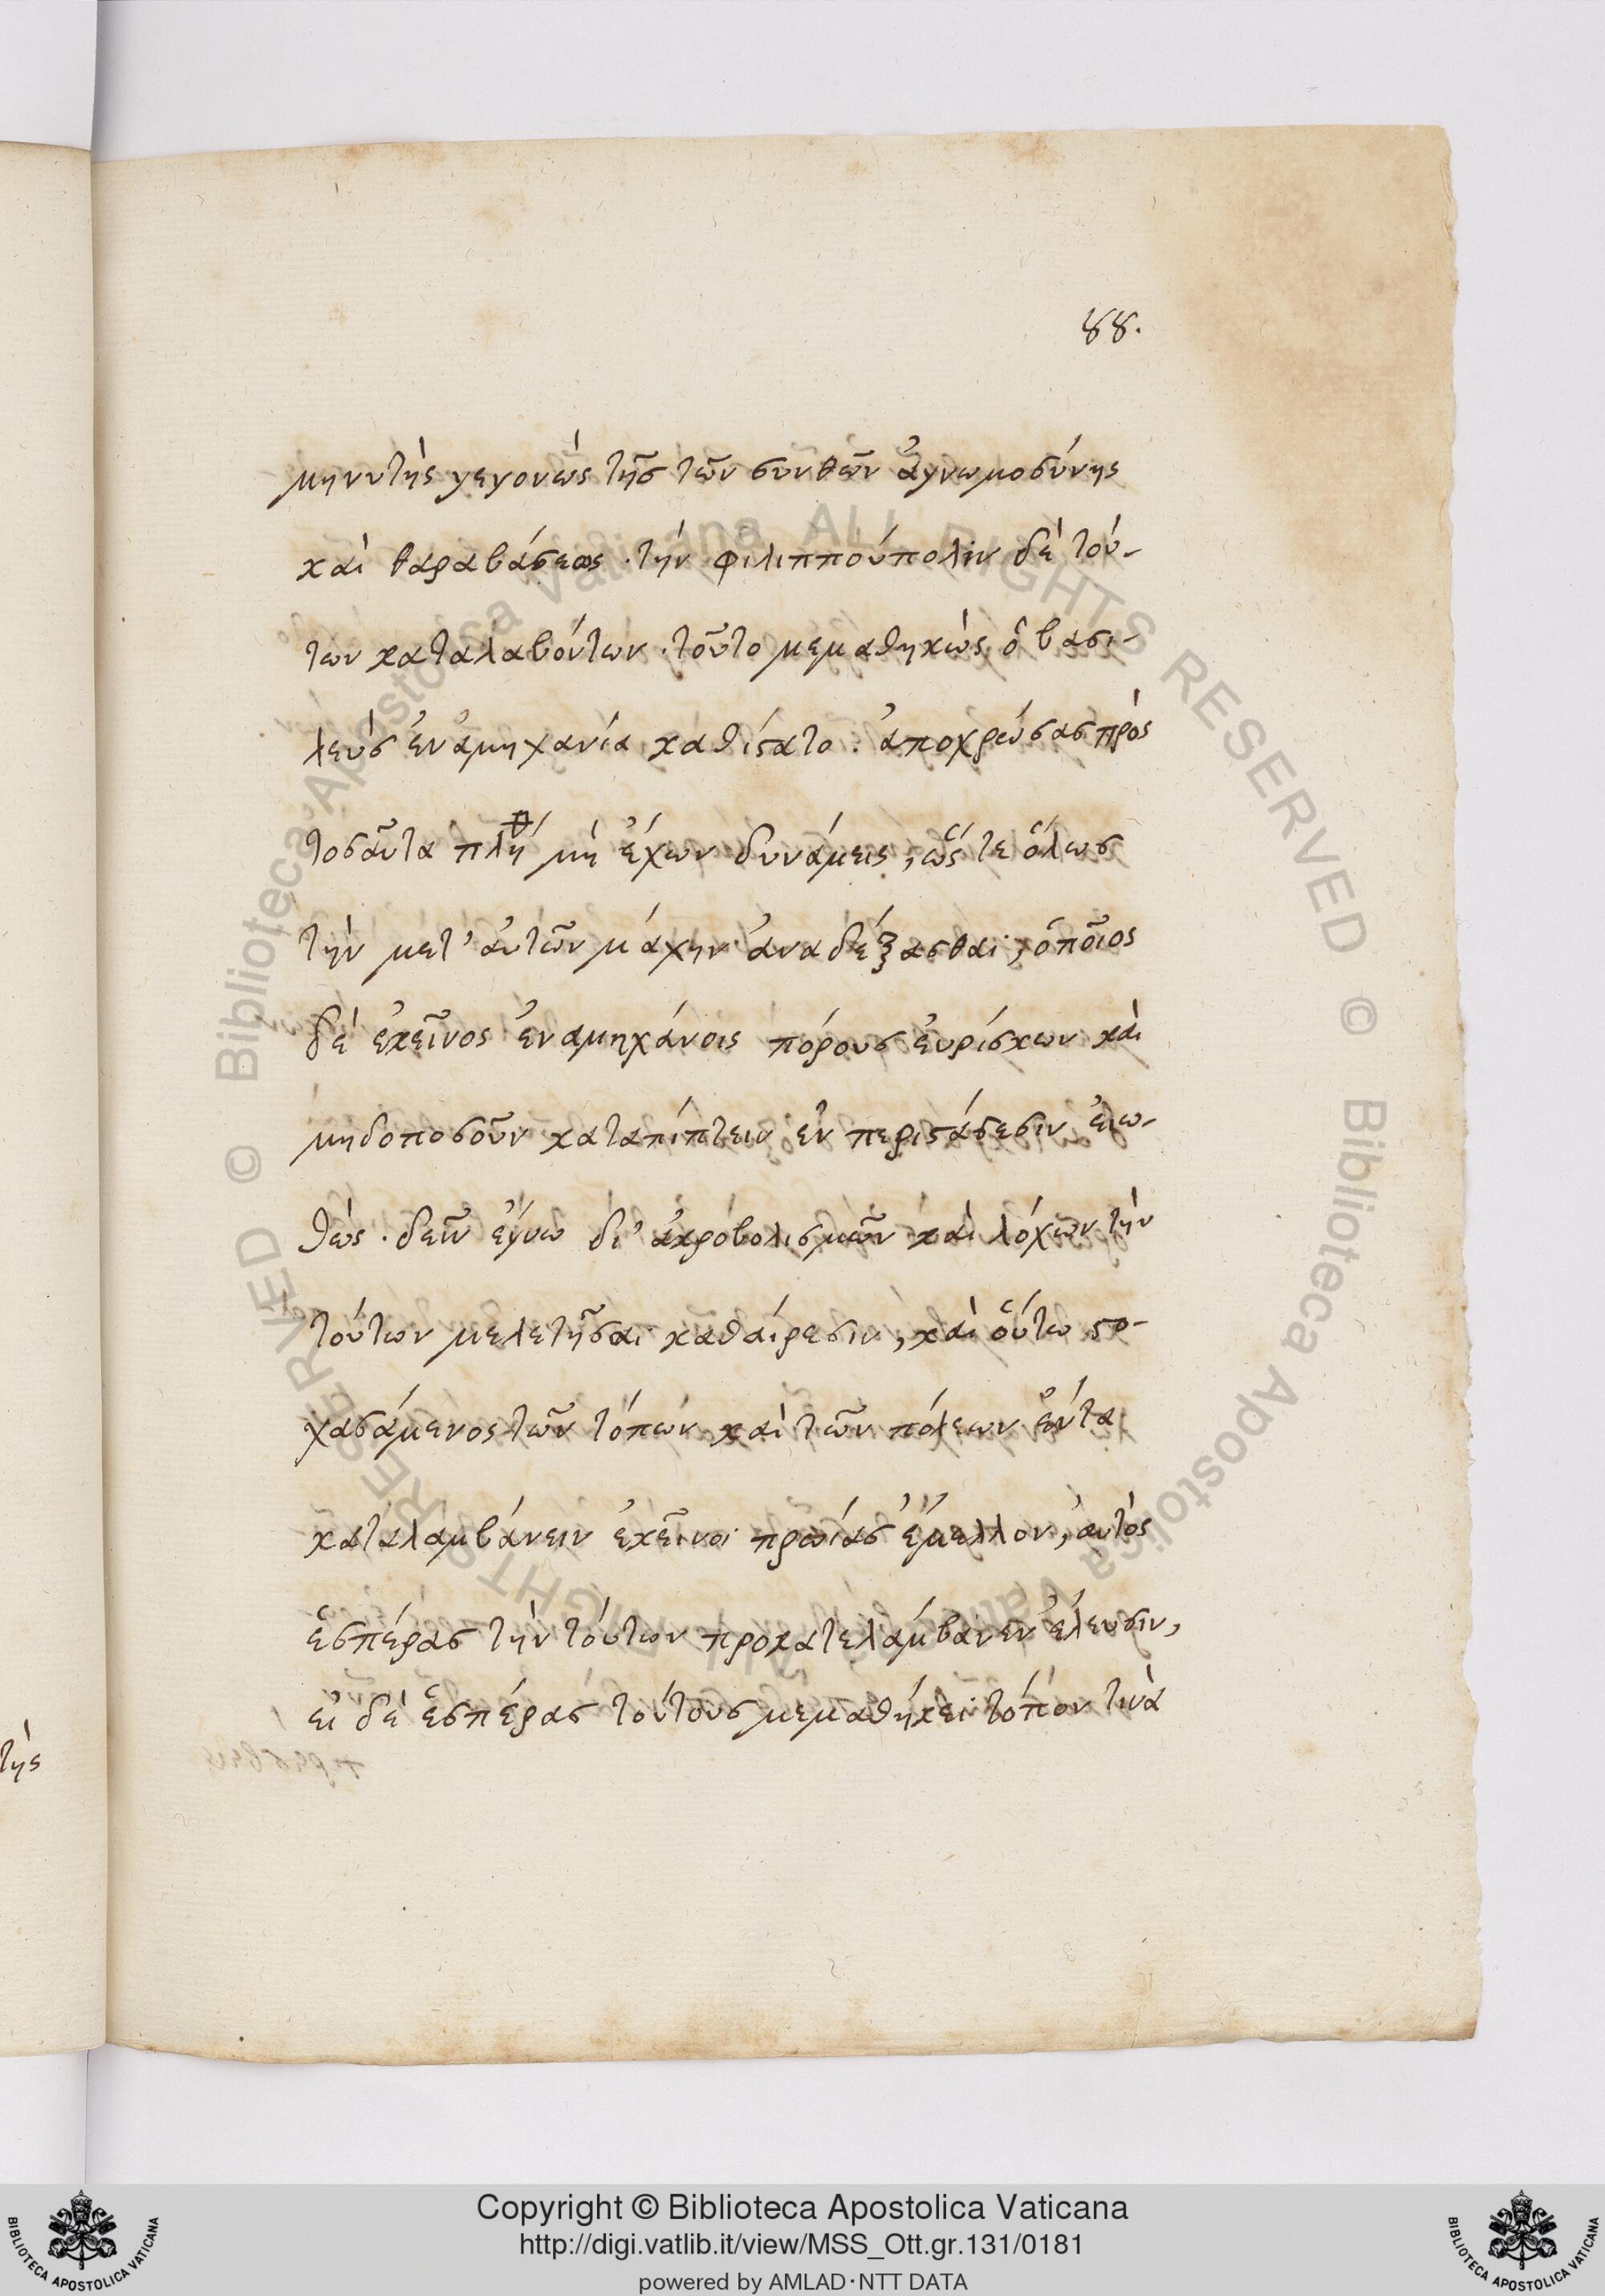 88.
μηνυτὴς γεγονὼς τῆσ τῶν συνθῶν ἀγνωμοσύνης
καὶ παραβάσεως . τὴν φιλιππούπολιν δὲ τού-
των καταλαβόντων . τοῦτο μεμαθηκὼς ὁ βασι-
λεὺσ ἐν ἀμηχανία καθίστατο . ἀποχρεώσασ πρὸς
τοσαῦτα πλή μὴ ἔχων δυνάμεις , ὥς τε ὅλωσ
τὴν μετ' ἀυτῶν μάχην ἀναδέξασθαι , ὁποῖος
δὲ ἐκεῖνος ἐν ἀμηχάνοις πόρουσ ἐυρίσκων καὶ
μηδοποσοῦν καταπίπτειν ἐν περιστάσεσιν ἐιω-
θὼς . δεῖν ἔγνω δι' ἀκροβολισμῶν καὶ λόχων τὴν
τούτων μελετῆσαι καθαίρεσιν , καὶ ὅυτω στο-
χασάμενος τῶν τόπων καὶ τῶν πόλεων ἔντα
καταλαμβάνειν ἐκεῖνοι πρωίασ ἔμελλον , ἀυτὸς
ἑσπέρασ τὴν τούτων προκατελάμβανεν ἔλευσιν ,
ει δὲ ἑσπέρασ τούτουσ μεμαθήκει τόπον τινὰ
τὴς
Copyright © Biblioteca Apostolica Vaticana
http://digi.vatlib.it/view/MSS_Ott.gr.131/0181
powered by AMLAD·NTT DATA
BIBLIOTECA APOSTOLICA VATICANA
BIBLIOTECA APOSTOLICA VATICANA
© Biblioteca Apostolica Vaticana ALL RIGHTS RESERVED © Biblioteca Apostolica Vaticana ALL RIGHTS RESERVED